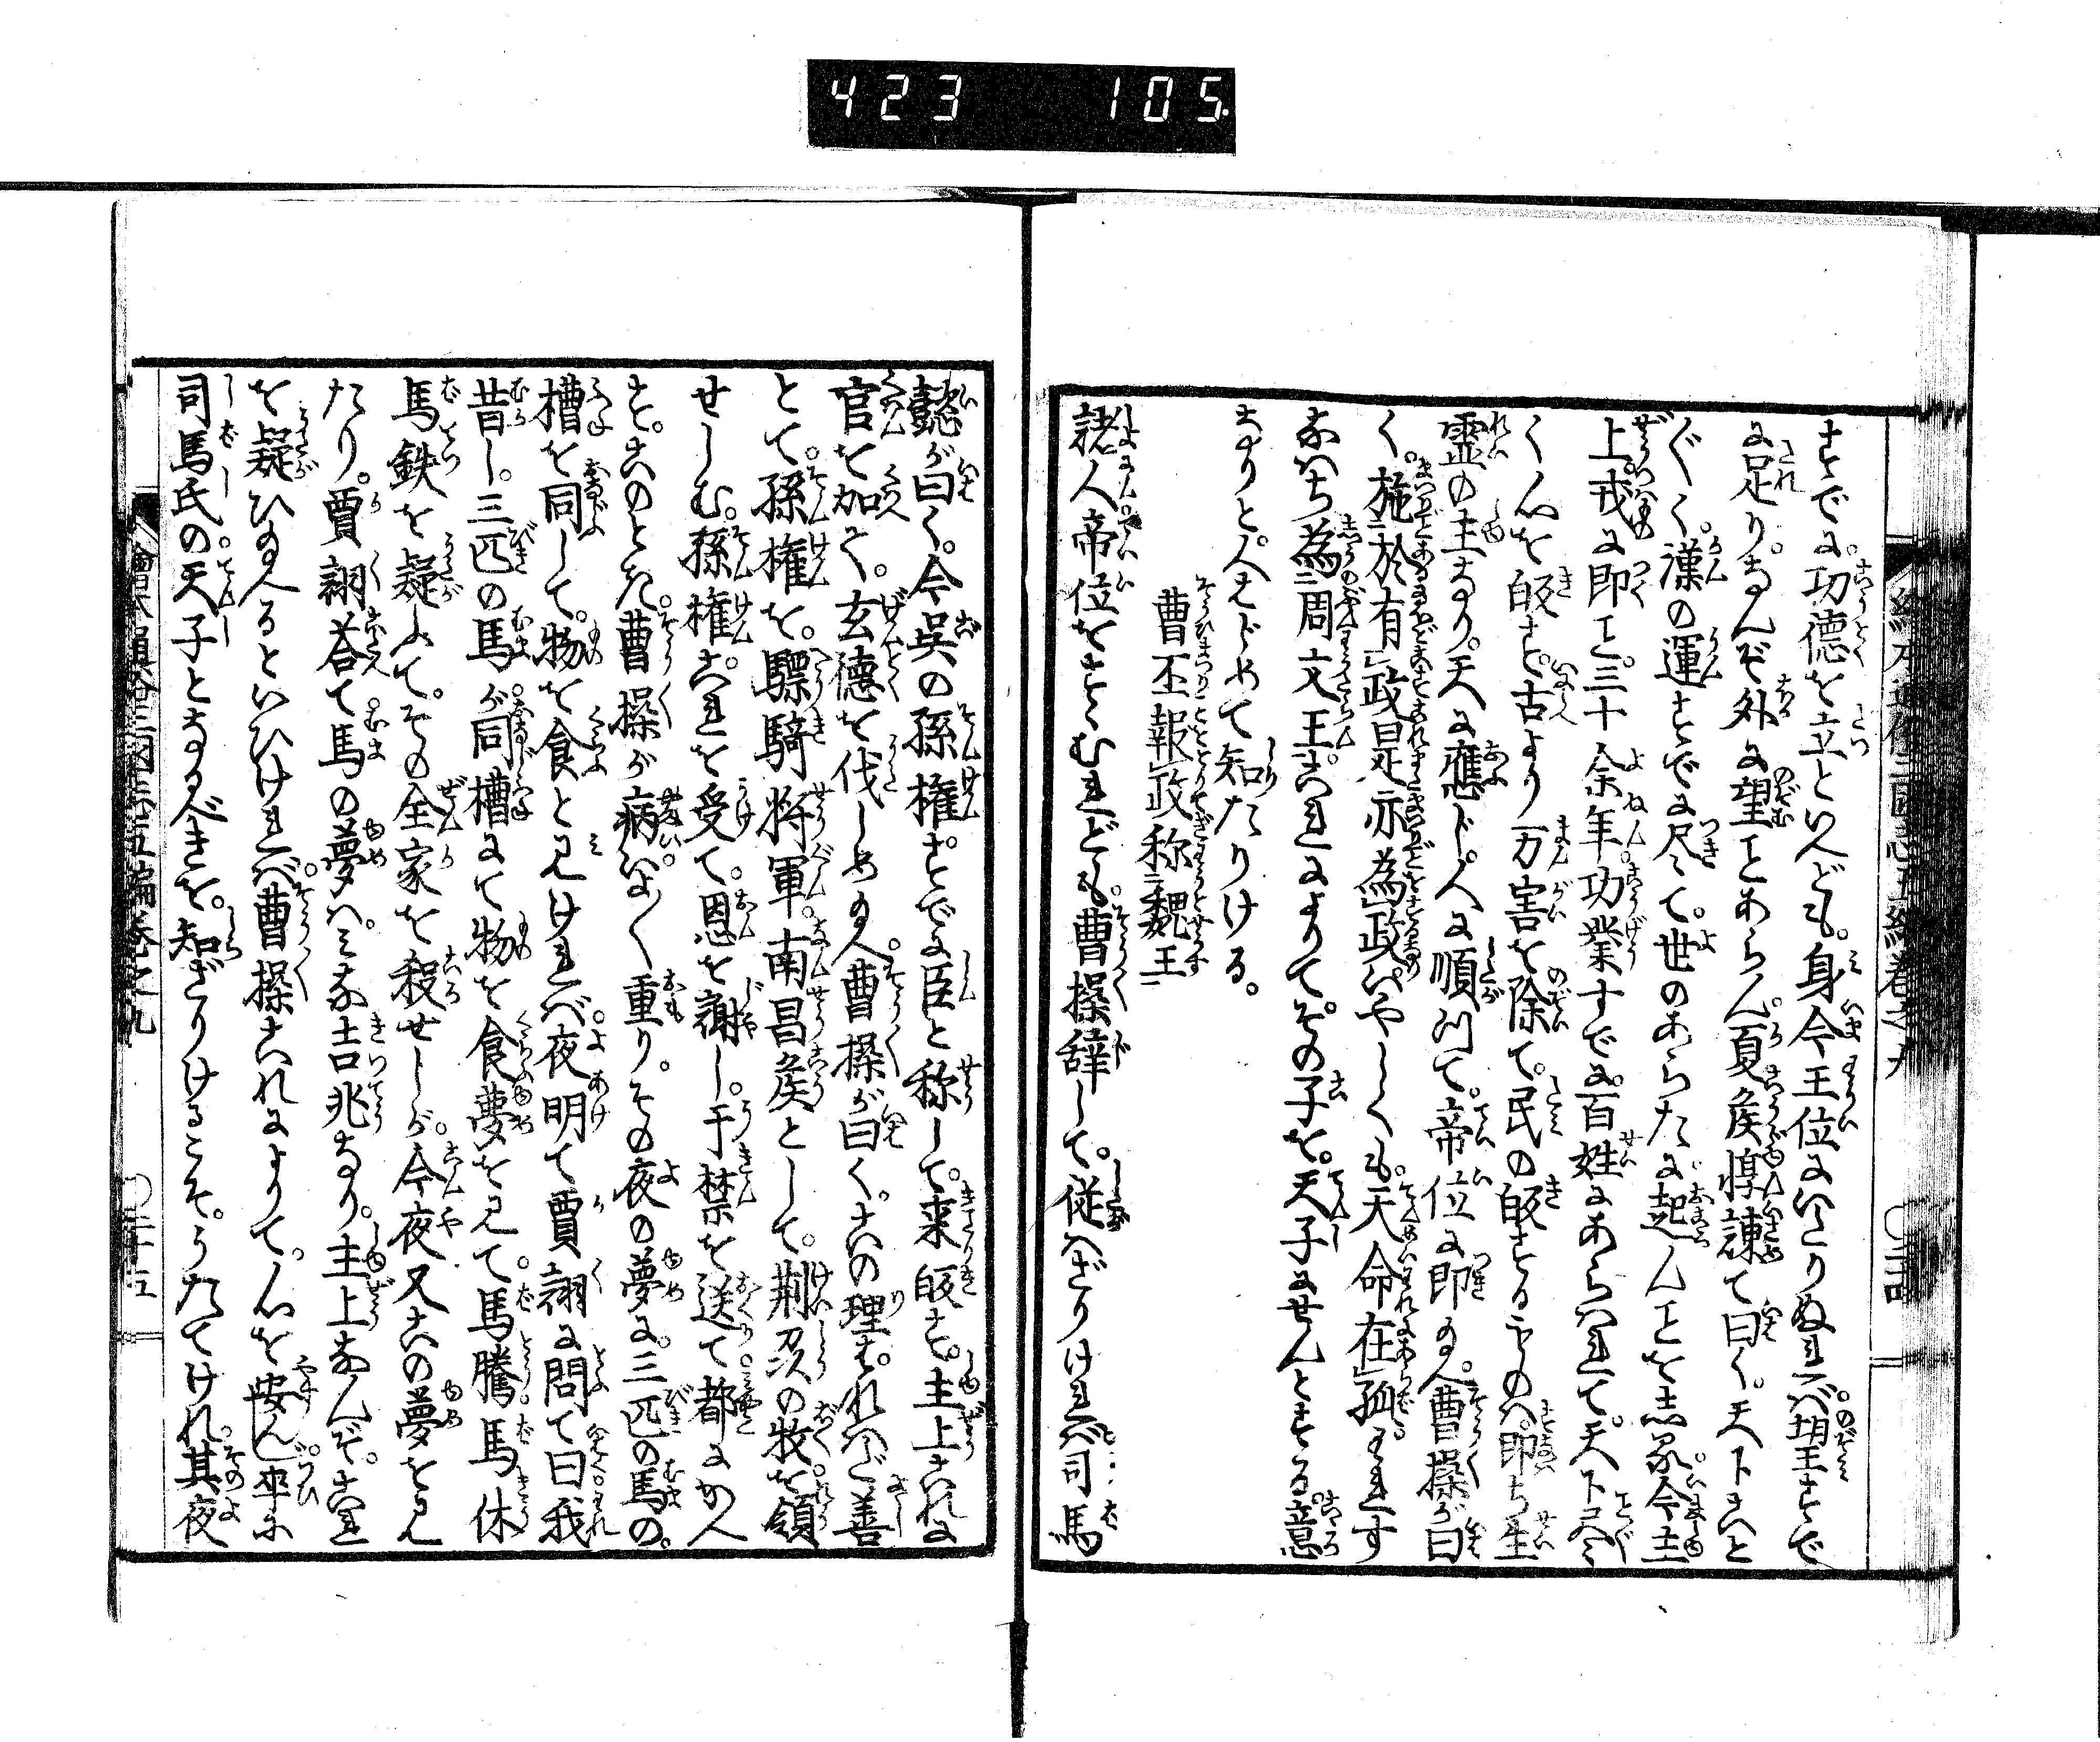 423 105
すでに。功徳を立といへども。身今王位にいたりぬれば。望すで
に足り。なんぞ外に望ことあらん。夏侯惇諌て曰く。天下こと
ぐく。漢の運すでに尽て。世のあらたに起んことを志る。今主
上戎に即こと。三十余年功業すでに百姓にあらはれて。天下こと
く心を皈す。古より万害を除て。民の皈するものハ。即ち生
霊の主なり。天に應じ人に順つて。帝位に即給へ。曹操が曰
く。施於有政是亦為政いやしくも。天命在孤われす
なハち為周文王これによりて。その子を。天子にせんとする意
なりと。人はじめて知たりける。
曹丕報政称魏王
諸人帝位をすゝむれども。曹操辞して。従ハざりければ司馬
懿が曰く。今呉の孫権すでに臣と称して。来皈す。主上これに
官を加へ。玄徳を伐しめ給へ。曹操が曰く。この理もつとも善
とて。孫権を。驃騎将軍。南昌侯として。荊州の牧を領
せしむ。孫権これを受て。恩を謝し。于禁を送て都にかへ
す。このとき。曹操が病いよ〱重り。その夜の夢に。三匹の馬の。
槽を同して。物を食と見ければ。夜明て賈詡に問て曰我
昔し。三匹の馬が同槽にて物を食夢を見て。馬騰馬休
馬鉄を疑ふて。その全家を殺せしが。今夜又この夢を見
たり。賈詡答て馬の夢ハみな吉兆なり。主上なんぞ。これ
を疑ひ給へるといひければ。曹操これによりて。心を安んじ。終に
司馬氏の。天子となるべきを。知ざりけるこそ。うたてけれ。其夜
繪本通俗三國志五編巻之九
繪本通俗三國志五編巻之九 〇二十五